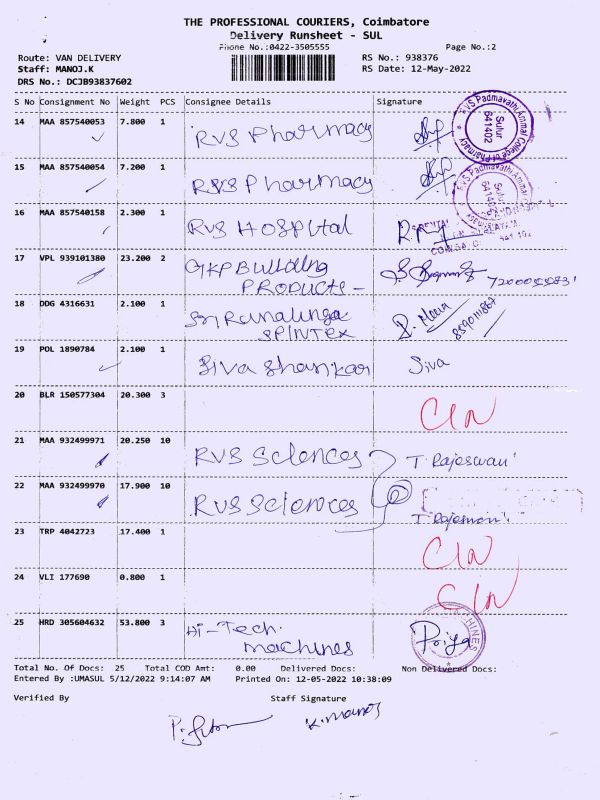 THE PROFESSIONAL COURIERS, Coimbatore
Delivery Runsheet - SUL
Phone No.:0422-3505555 Page No.:2
Route: VAN DELIVERY RS No.: 938376
Staff: MANOJ.K RS Date: 12-May-2022
DRS No.: DCJB93837602
S No Consignment No Weight PCS Consignee Details Signature
14 MAA 857540053 7.800 1 RVS Pharmacy
RVS Padmavathi Ammal College of Pharmacy
Sulur
641402
15 MAA 857540054 7.200 1 RVS Pharmacy
RVS Padmavathi Ammal
Sulur
16 MAA 857540158 2.300 1 RVS HOSPITAL
17 VPL 939101380 23.200 2 GKP Building
PRODUCTS -
18 DDG 4316631 2.100 1 Sri Ramalinga
SPINTEX
19 POL 1890784 2.100 1 Siva Shankar Siva
20 BLR 150577304 20.300 3
21 MAA 932499971 20.250 10 RVS Sciences T. Rajeswari
22 MAA 932499970 17.900 10 RVS Sciences
T. Rajeswari
23 TRP 4042723 17.400 1
24 VLI 177690 0.800 1
25 HRD 305604632 53.800 3 Hi-Tech Priya
machines
Total No. Of Docs: 25 Total COD Amt: 0.00 Delivered Docs: Non Delivered Docs:
Entered By :UMASUL 5/12/2022 9:14:07 AM Printed On: 12-05-2022 10:38:09
Verified By Staff Signature
K. Manoj